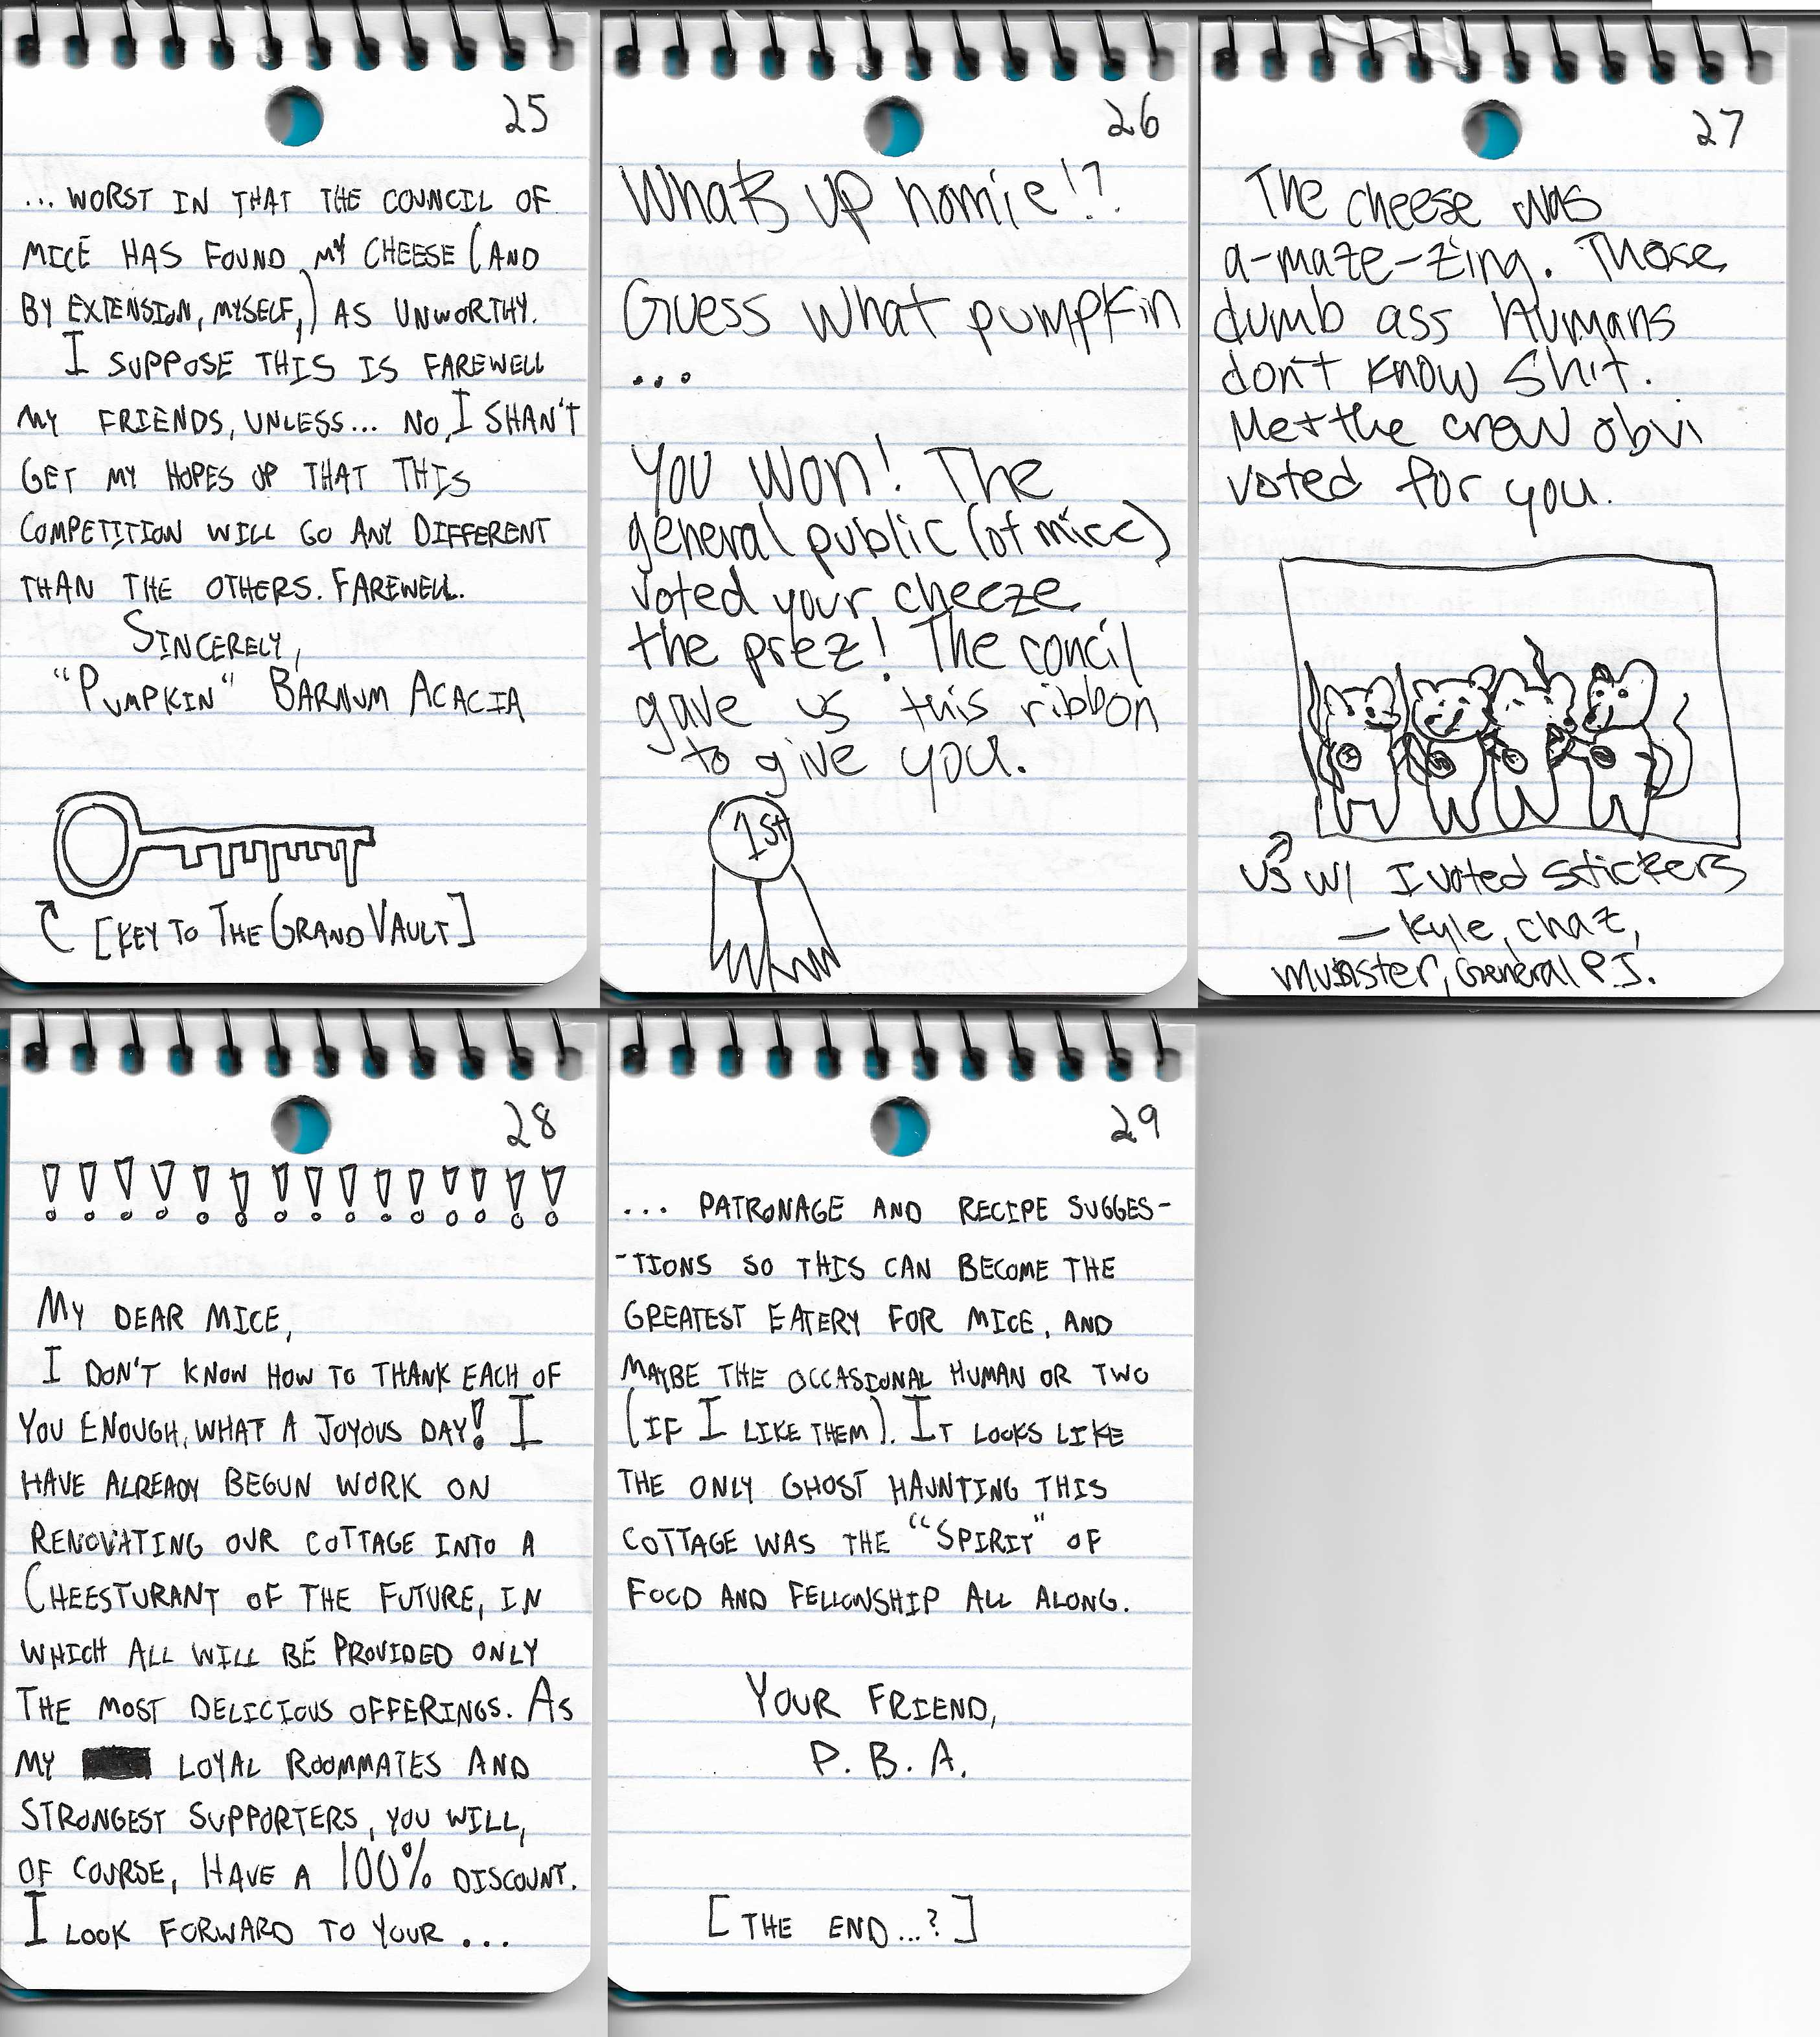 25
... WORST IN THAT THE COUNCIL OF
MICE HAS FOUND MY CHEESE (AND
BY EXTENSION, MYSELF,) AS UNWORTHY.
I SUPPOSE THIS IS FAREWELL
MY FRIENDS, UNLESS... NO, I SHAN'T
GET MY HOPES UP THAT THIS
COMPETITION WILL GO ANY DIFFERENT
THAN THE OTHERS. FAREWELL.
SINCERELY,
"PUMPKIN" BARNUM ACACIA
[KEY TO THE GRAND VAULT]
26
What's up homie!?
Guess what pumpkin
...
You won! The
general public (of mice)
voted your cheeze
the prez! The concil
gave us this ribbon
to give you.
1st
27
The cheese was
a-maze-zing. Those
dumb ass humans
don't know shit.
Me + the crew obvi
voted for you.
us w/ I voted stickers
— Kyle, chaz,
munster, General P.J.
28
! ! ! ! ! ! ! ! ! ! ! ! ! ! !
MY DEAR MICE,
I DON'T KNOW HOW TO THANK EACH OF
YOU ENOUGH, WHAT A JOYOUS DAY! I
HAVE ALREADY BEGUN WORK ON
RENOVATING OUR COTTAGE INTO A
CHEESTURANT OF THE FUTURE, IN
WHICH ALL WILL BE PROVIDED ONLY
THE MOST DELICIOUS OFFERINGS. AS
MY LOYAL ROOMMATES AND
STRONGEST SUPPORTERS, YOU WILL,
OF COURSE, HAVE A 100% DISCOUNT.
I LOOK FORWARD TO YOUR ...
29
... PATRONAGE AND RECIPE SUGGES-
-TIONS SO THIS CAN BECOME THE
GREATEST EATERY FOR MICE, AND
MAYBE THE OCCASIONAL HUMAN OR TWO
(IF I LIKE THEM). IT LOOKS LIKE
THE ONLY GHOST HAUNTING THIS
COTTAGE WAS THE "SPIRIT" OF
FOOD AND FELLOWSHIP ALL ALONG.
YOUR FRIEND,
P. B. A.
[THE END...?]